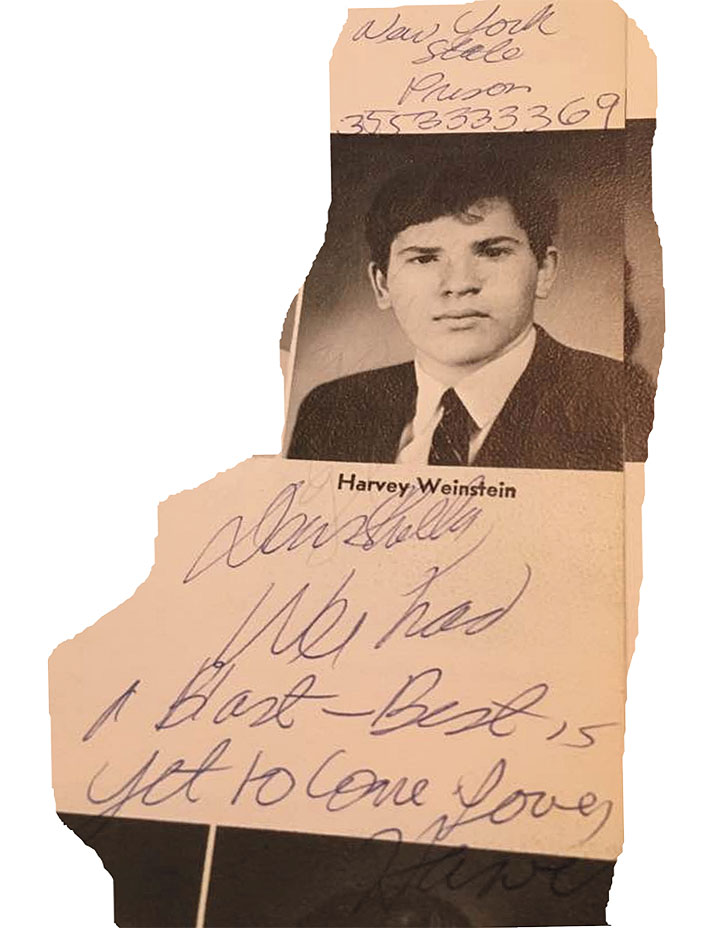 New York
State
Prison
3553333369
Harvey Weinstein
Dear Shelly
We had
A Blast – Best is
yet to Come Love,
Harve